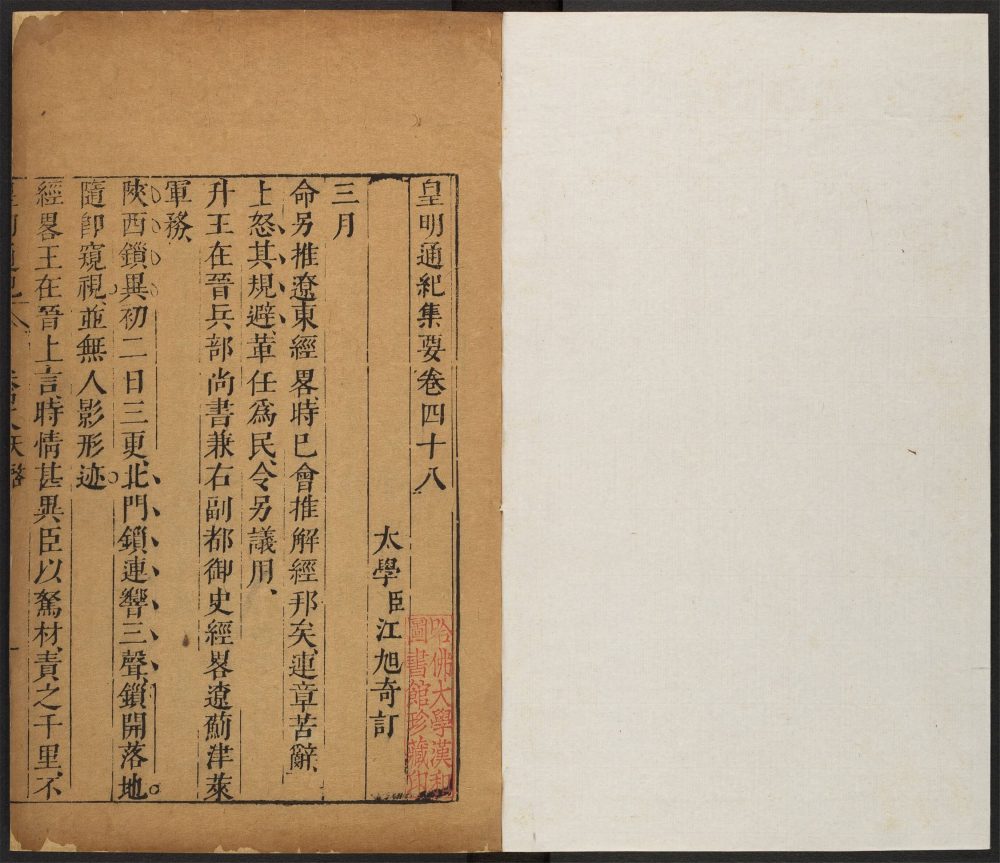 皇明通紀集要卷四十八
太學臣江旭奇訂
三月
命另推遼東經畧時巳會推解經邦矣連章苦辭、
上怒其規避、革任爲民、令另議用、
升王在晉兵部尚書兼右副都御史經畧遼薊津萊
軍務、
陜西鎖異初二日三更、北門鎖連響三聲、鎖開落地。
隨卽窺視、並無人影形迹。
經畧王在晉上言、時情甚異臣以駑材、責之千里、不
哈佛大學漢和
圖書館珍藏印